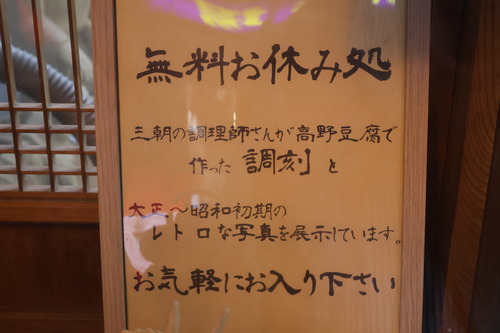 無料お休み処
三朝の調理師さんが高野豆腐で
作った 調刻 と
大正～昭和初期の
レトロな写真を展示しています。
お気軽にお入り下さい